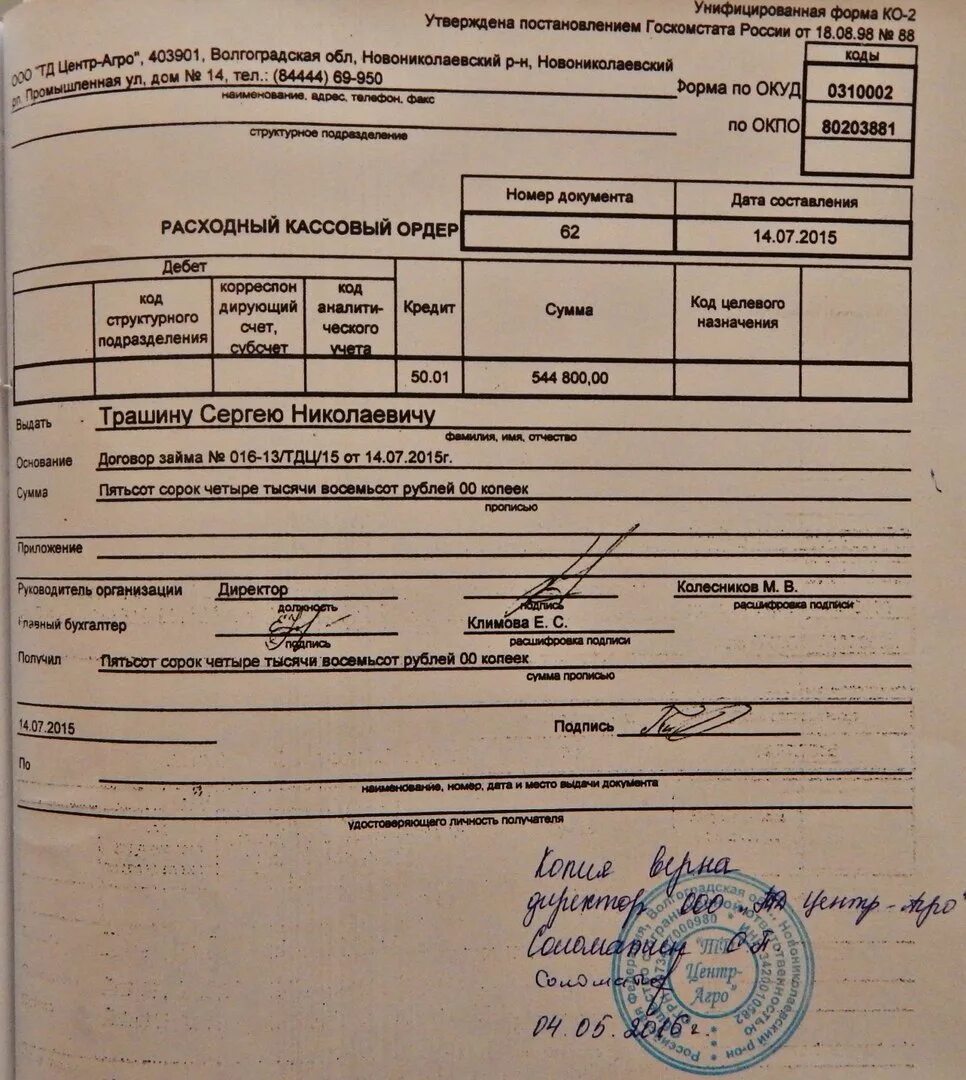 Унифицированная форма КО-2
Утверждена постановлением Госкомстата России от 18.08.98 № 88
коды
ООО "ТД Центр-Агро", 403901, Волгоградская обл, Новониколаевский р-н, Новониколаевский
рп, Промышленная ул, дом № 14, тел.: (84444) 69-950
наименование, адрес, телефон, факс
Форма по ОКУД 0310002
по ОКПО 80203881
структурное подразделение
Номер документа Дата составления
РАСХОДНЫЙ КАССОВЫЙ ОРДЕР 62 14.07.2015
Дебет
код структурного подразделения
корреспон дирующий счет, субсчет
код аналити- ческого учета
Кредит
Сумма
Код целевого назначения
50.01 544 800,00
Выдать Трашину Сергею Николаевичу
фамилия, имя, отчество
Основание Договор займа № 016-13/ТДЦ/15 от 14.07.2015г.
Сумма Пятьсот сорок четыре тысячи восемьсот рублей 00 копеек
прописью
Приложение
Руководитель организации Директор Колесников М. В.
должность подпись расшифровка подписи
Главный бухгалтер Климова Е. С.
подпись расшифровка подписи
Получил Пятьсот сорок четыре тысячи восемьсот рублей 00 копеек
сумма прописью
14.07.2015 Подпись
По
наименование, номер, дата и место выдачи документа
удостоверяющего личность получателя
Копия верна
директор ООО "ТД Центр-Агро"
Соломатин С П
04.05.2016 г.
"ТД Центр- Агро"